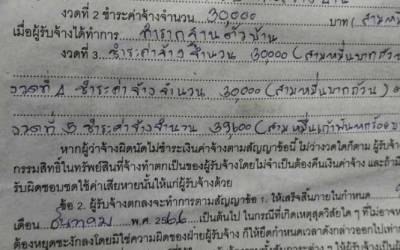 งวดที่ 2 ชำระค่าจ้างจำนวน 30,000 บาท (สามหมื่
เมื่อผู้รับจ้างได้ทำการ
งวดที่ 3 ชำระค่าจ้าง จำนวน 30000 (สามหมื่นบาทถ้วน
งวดที่ 4 ชำระค่าจ้างจำนวน 30,000 (สามหมื่นบาทถ้วน)
งวดที่ 5 ชำระค่าจ้างจำนวน 39600 (สามหมื่นเก้าพันหกร้อย
หากผู้ว่าจ้างผิดนัดไม่ชำระเงินค่าจ้างตามสัญญาข้อนี้ ไม่ว่างวดใดก็ตาม ผู้รับจ้าง
กรรมสิทธิ์ในทรัพย์สินที่จ้างทำตกเป็นของผู้รับจ้างโดยไม่จำเป็นต้องคืนเงินค่าจ้าง และถ้ามี
รับผิดชอบชดใช้ค่าเสียหายนั้นให้แก่ผู้รับจ้างด้วย
ข้อ 2. ผู้รับจ้างตกลงจะทำการตามสัญญาข้อ 1. ให้เสร็จสิ้นภายในกำหนด
เดือน ธันวาคม พ.ศ. 2566 เป็นต้นไป ในกรณีที่เกิดเหตุสุดวิสัยใด ๆ ที่ไม่อาจ
ต้องหยุดชะงักลงโดยมิใช่ความผิดของฝ่ายผู้รับจ้าง ก็ให้ยืดกำหนดเวลาดังกล่าวออกไปเท่า